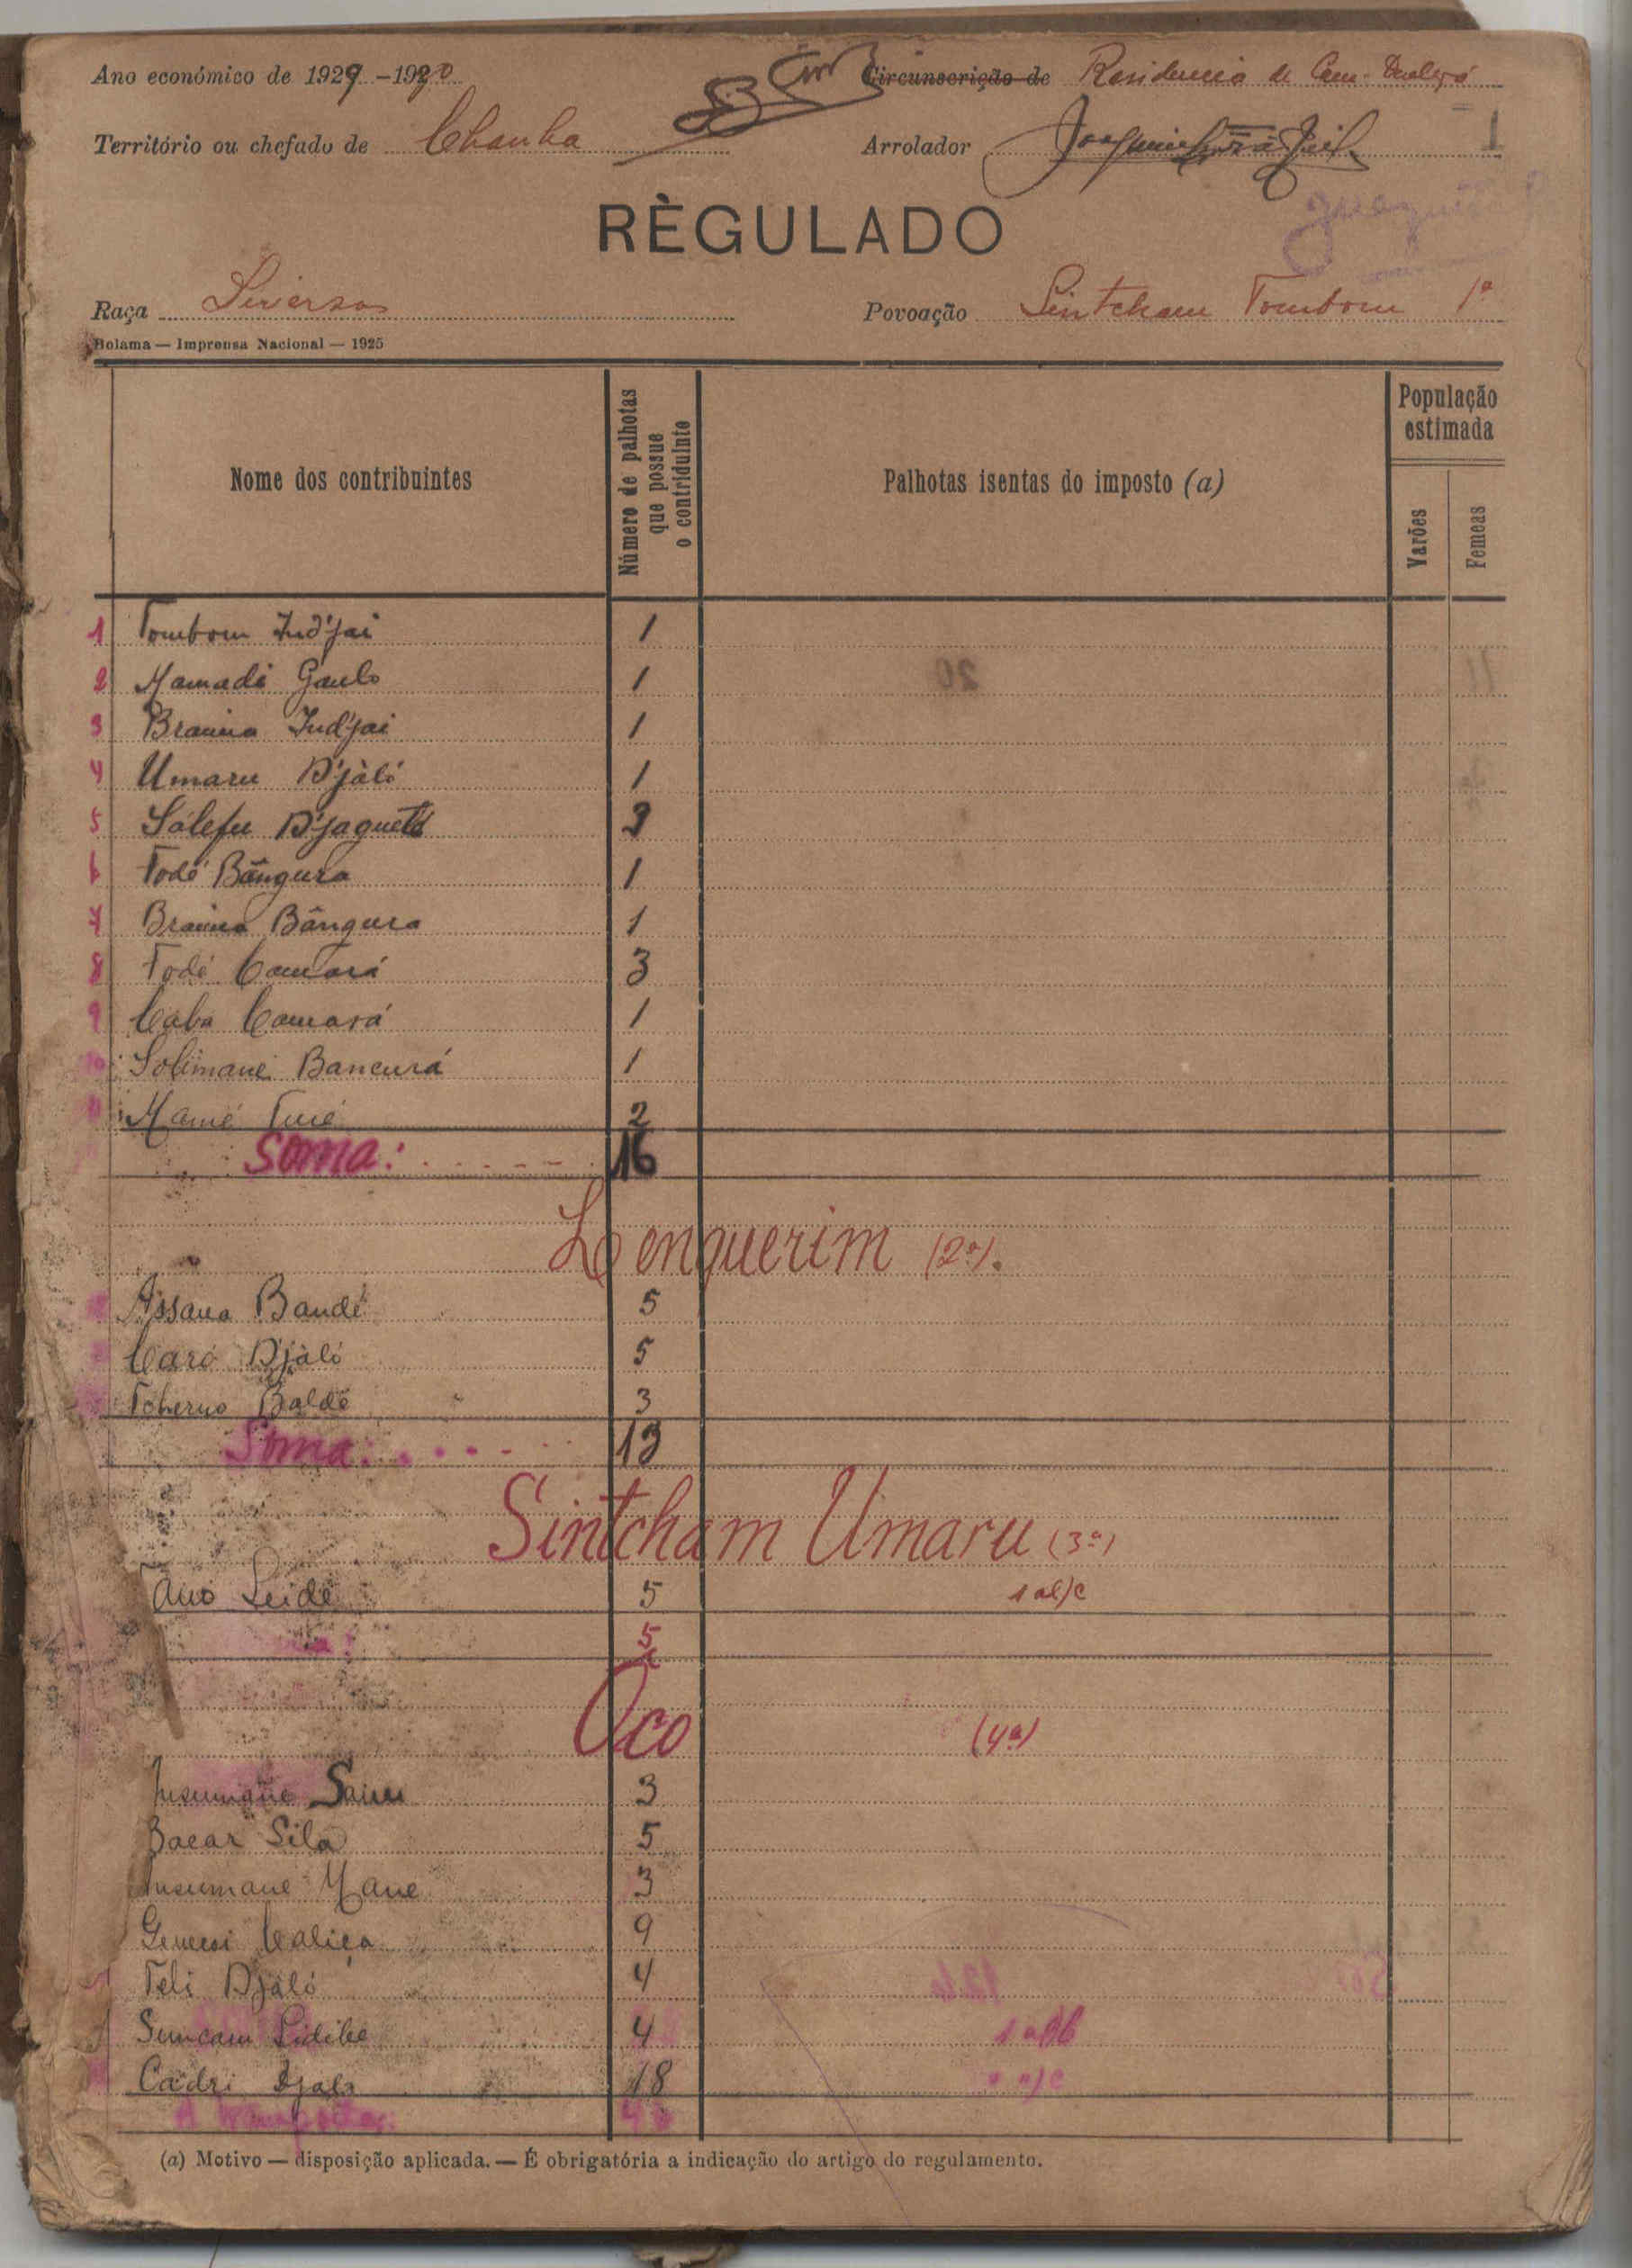 Ano económico de 1929-1930 Circunscrição de Residencia de
Território ou chefado de Chanha Arrolador
1
RÈGULADO
Raça Diversos Povoação Sintcham Tombom 1ª
Bolama — Imprensa Nacional — 1925
Nome dos contribuintes
Número de palhotas que possue o contriduinto
Palhotas isentas do imposto (a)
População estimada
Varões
Femeas
1 Tombom Ind'jai 1
2 Mamadi 1
3 Braima Ind'jai 1
4 Umaru D'jàló 1
5 Sálefu 3
6 Fodé Bângura 1
7 Braima Bângura 1
8 Fodé Camará 3
9 Caba Camará 1
10 Solimane Bancurá 1
11 Mamé Turé 2
Soma: 16
Lenquerim (2ª).
Assana Bandé 5
Caró Djàló 5
Tcherno Baldé 3
Soma: 13
Sintcham Umaru (3ª)
Leide 5
5
Oco (4ª)
3
Bacar Sila 5
Insumane Mane 3
9
Teli Djaló 4
Suncam Sidibe 4
Cadri Djaló 18
A transportar:
(a) Motivo — disposição aplicada. — É obrigatória a indicação do artigo do regulamento.